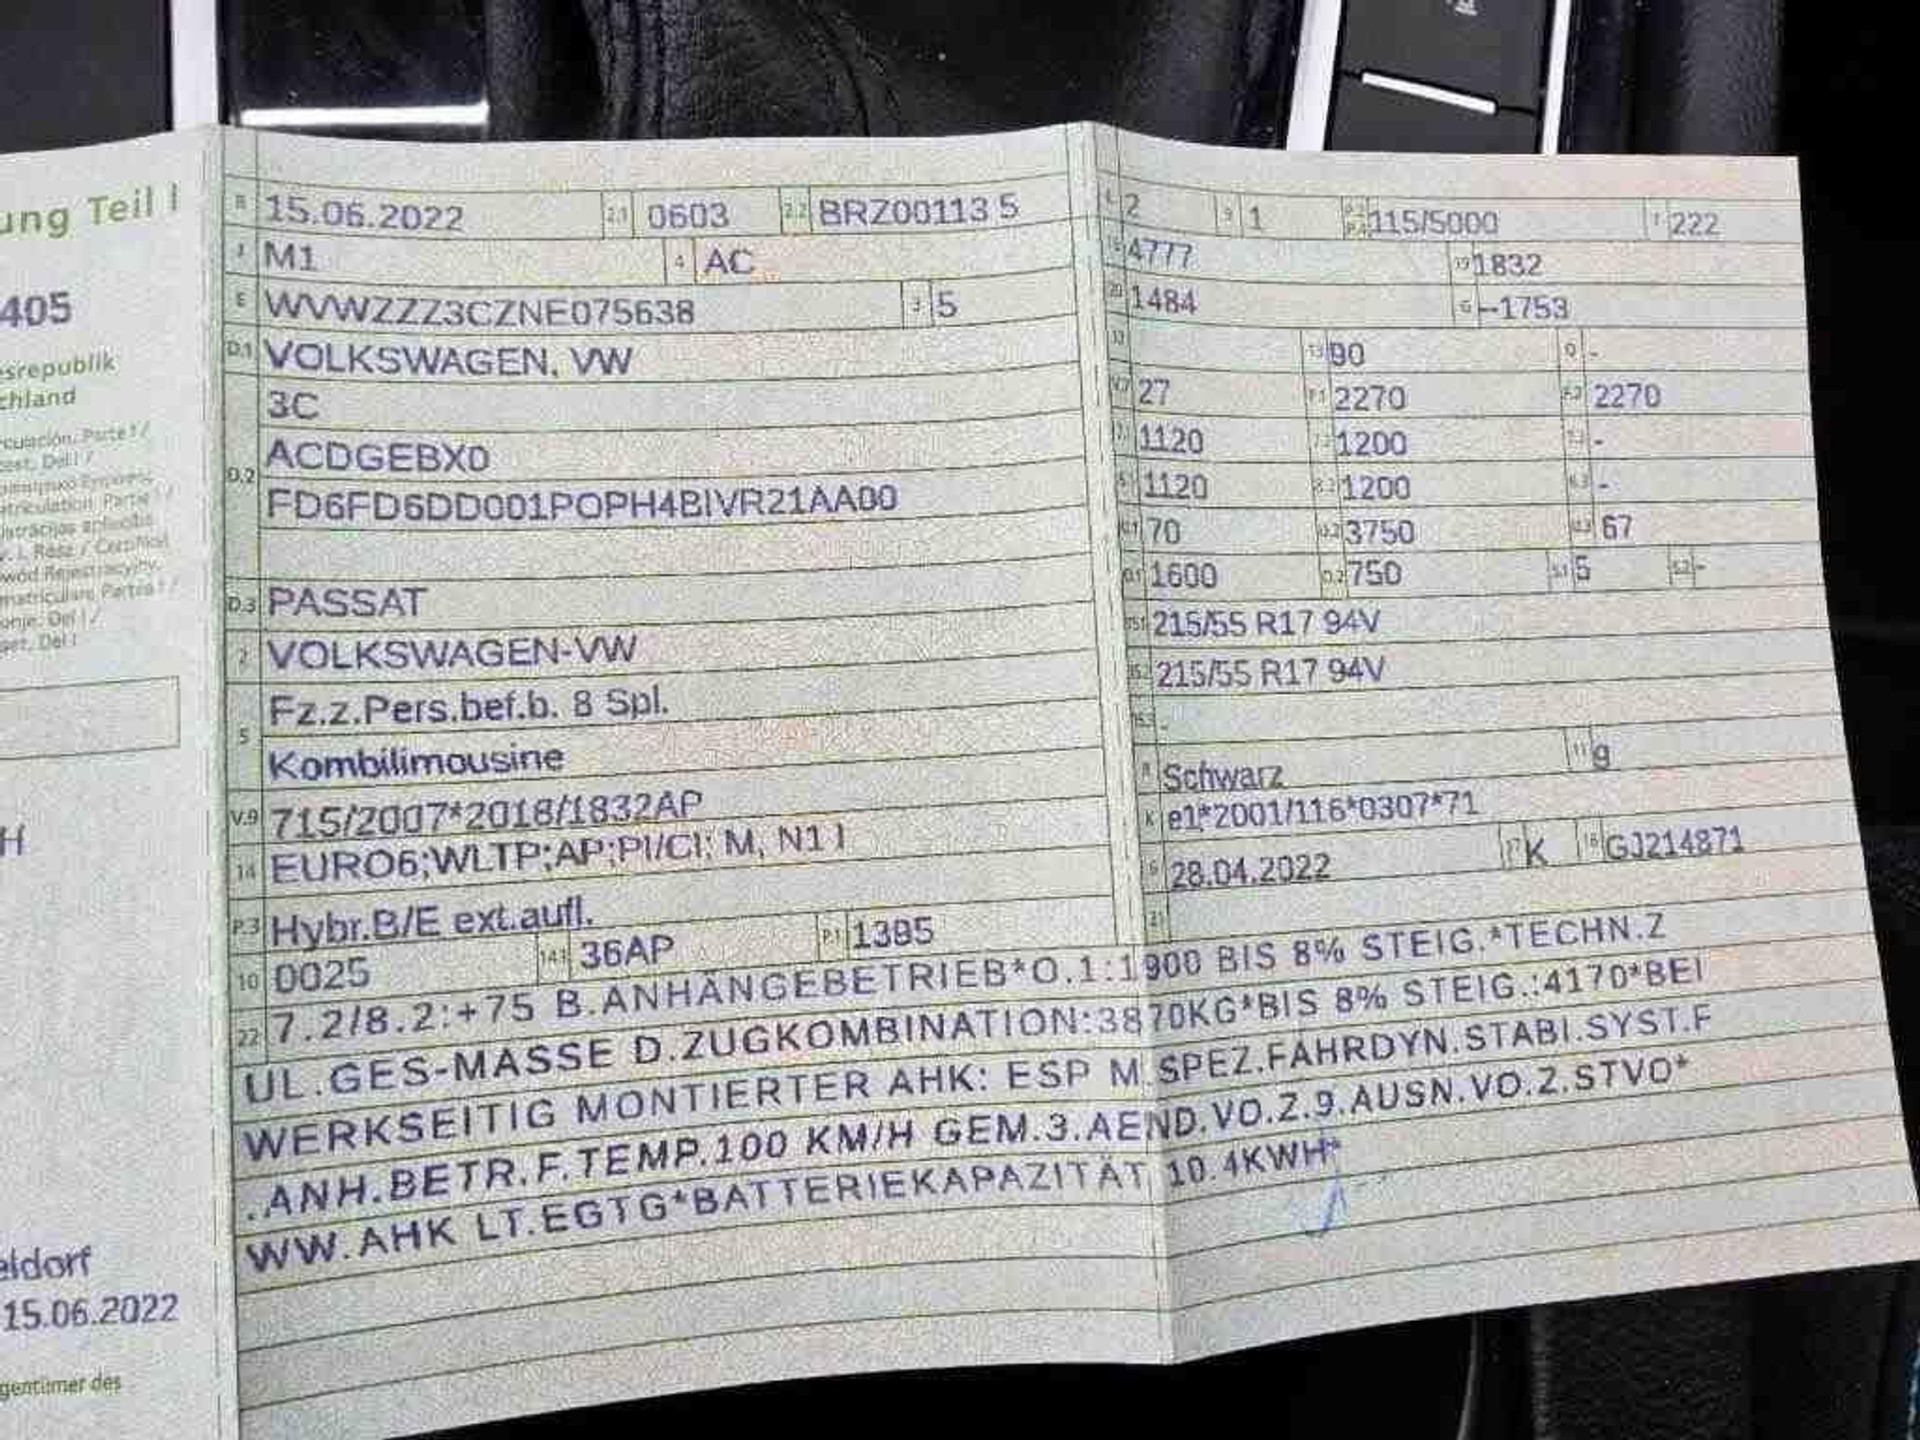 ung Teil I
405
esrepublik
chland
H
eldorf
15.06.2022
gentümer des
B 15.06.2022 2.1 0603 2.2 BRZ00113 5
J M1 4 AC
E WVWZZZ3CZNE075638 3 5
D.1 VOLKSWAGEN, VW
3C
D.2 ACDGEBX0
FD6FD6DD001POPH4BIVR21AA00
D.3 PASSAT
2 VOLKSWAGEN-VW
5 Fz.z.Pers.bef.b. 8 Spl.
Kombilimousine
V.9 715/2007*2018/1832AP
14 EURO6;WLTP;AP;PI/CI; M, N1 I
P.3 Hybr.B/E ext.aufl.
10 0025 14.1 36AP P.1 1395
L 2 9 1 P.2 P.4 115/5000 T 222
18 4777 19 1832
20 1484 G --1753
12 13 90 Q -
V.7 27 F.1 2270 F.2 2270
7.1 1120 7.2 1200 7.3 -
8.1 1120 8.2 1200 8.3 -
U.1 70 U.2 3750 U.3 67
O.1 1600 O.2 750 S.1 5 S.2 -
15.1 215/55 R17 94V
15.2 215/55 R17 94V
15.3 -
R Schwarz 11 9
K e1*2001/116*0307*71
6 28.04.2022 17 K 16 GJ214871
21
22 7.2/8.2:+75 B.ANHÄNGEBETRIEB*O.1:1900 BIS 8% STEIG.*TECHN.Z
UL.GES-MASSE D.ZUGKOMBINATION:3870KG*BIS 8% STEIG.:4170*BEI
WERKSEITIG MONTIERTER AHK: ESP M.SPEZ.FAHRDYN.STABI.SYST.F
.ANH.BETR.F.TEMP.100 KM/H GEM.3.AEND.VO.Z.9.AUSN.VO.Z.STVO*
WW.AHK LT.EGTG*BATTERIEKAPAZITÄT 10.4KWH*